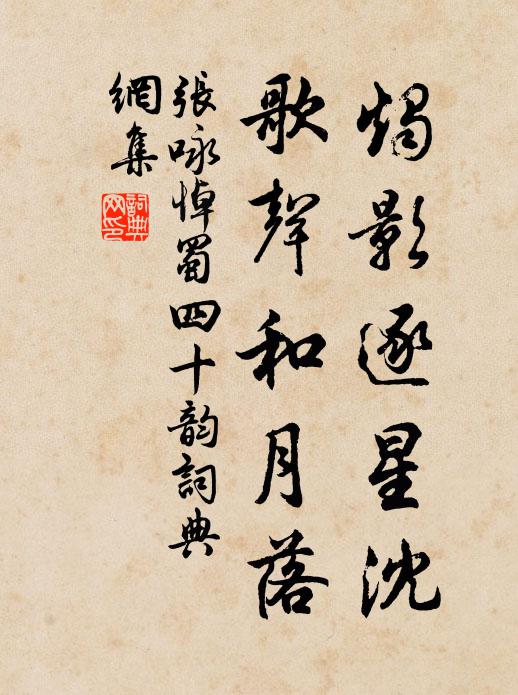 燭影逐星沈
歌聲和月落
張咏悼蜀四十韵詞典
網集
詞典
网印